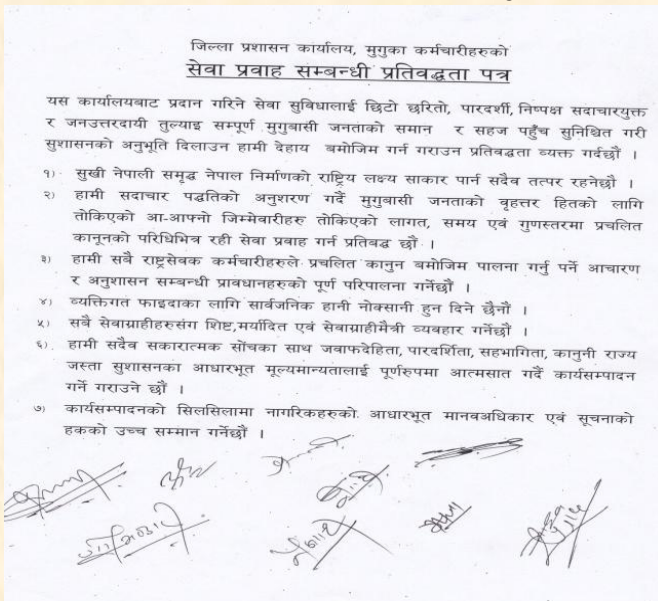 जिल्ला प्रशासन कार्यालय, मुगुका कर्मचारीहरुको
सेवा प्रवाह सम्बन्धी प्रतिवद्धता पत्र
यस कार्यालयबाट प्रदान गरिने सेवा सुविधालाई छिटो छरितो, पारदर्शी, निष्पक्ष सदाचारयुक्त
र जनउत्तरदायी तुल्याइ सम्पूर्ण मुगुबासी जनताको समान र सहज पहुँच सुनिश्चित गरी
सुशासनको अनुभूति दिलाउन हामी देहाय बमोजिम गर्न गराउन प्रतिवद्धता व्यक्त गर्दछौं ।
१) सुखी नेपाली समृद्ध नेपाल निर्माणको राष्ट्रिय लक्ष्य साकार पार्न सदैव तत्पर रहनेछौ ।
२) हामी सदाचार पद्धतिको अनुशरण गर्दै मुगुबासी जनताको वृहत्तर हितको लागि
तोकिएको आ-आफ्नो जिम्मेवारीहरु तोकिएको लागत, समय एवं गुणस्तरमा प्रचलित
कानूनको परिधिभित्र रही सेवा प्रवाह गर्न प्रतिवद्ध छौं ।
३) हामी सबै राष्ट्रसेवक कर्मचारीहरुले प्रचलित कानुन बमोजिम पालना गर्नु पर्ने आचारण
र अनुशासन सम्बन्धी प्रावधानहरुको पूर्ण परिपालना गर्नेछौं ।
४) व्यक्तिगत फाइदाका लागि सार्वजनिक हानी नोक्सानी हुन दिने छैनौं ।
५) सबै सेवाग्राहीहरुसंग शिष्ट,मर्यादित एवं सेवाग्राहीमैत्री व्यवहार गर्नेछौं ।
६) हामी सदैव सकारात्मक सोंचका साथ जवाफदेहिता, पारदर्शिता, सहभागिता, कानुनी राज्य
जस्ता सुशासनका आधारभूत मूल्यमान्यतालाई पूर्णरुपमा आत्मसात गर्दै कार्यसम्पादन
गर्ने गराउने छौं ।
७) कार्यसम्पादनको सिलसिलामा नागरिकहरुको आधारभूत मानवअधिकार एवं सूचनाको
हकको उच्च सम्मान गर्नेछौं ।